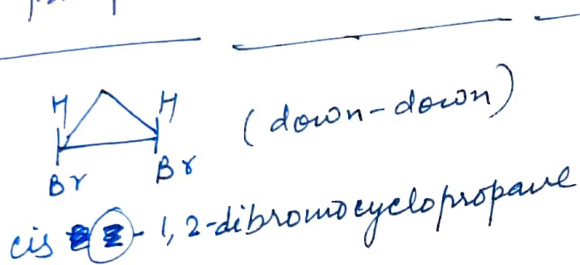 H H
(down-down)
Br Br
cis - 1,2-dibromocyclopropane